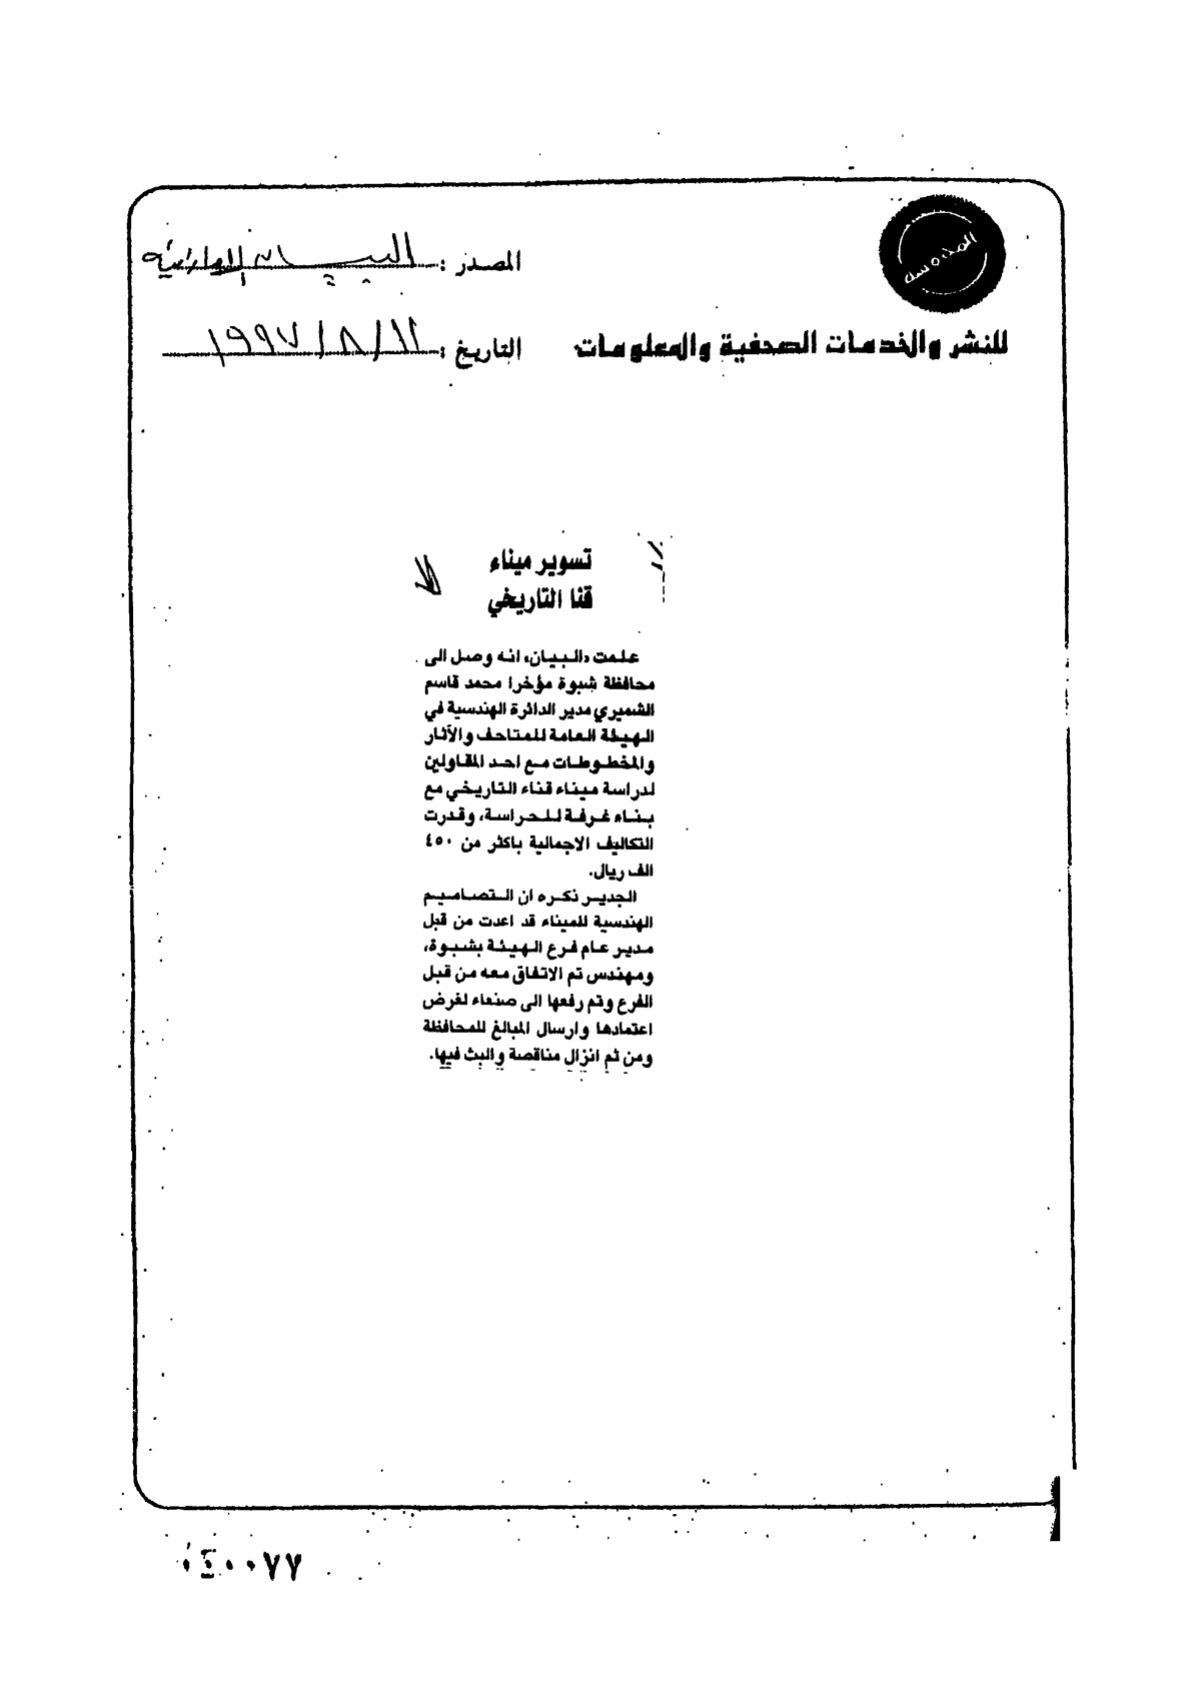 المحروسة
المصدر : البيان الإماراتية
للنشر والخدمات الصحفية والمعلومات
التاريخ : ١٩٩٧/٨/١٢
تسوير ميناء
قنا التاريخي
علمت «البيان» انه وصل الى
محافظة شبوة مؤخرا محمد قاسم
الشميري مدير الدائرة الهندسية في
الهيئة العامة للمتاحف والآثار
والمخطوطات مع احد المقاولين
لدراسة ميناء قناء التاريخي مع
بناء غرفة للحراسة، وقدرت
التكاليف الاجمالية باكثر من ٤٥٠
الف ريال.
الجدير نكره ان التصاميم
الهندسية للميناء قد اعدت من قبل
مدير عام فرع الهيئة بشبوة،
ومهندس تم الاتفاق معه من قبل
الفرع وتم رفعها الى صنعاء لغرض
اعتمادها وارسال المبالغ للمحافظة
ومن ثم انزال مناقصة والبث فيها.